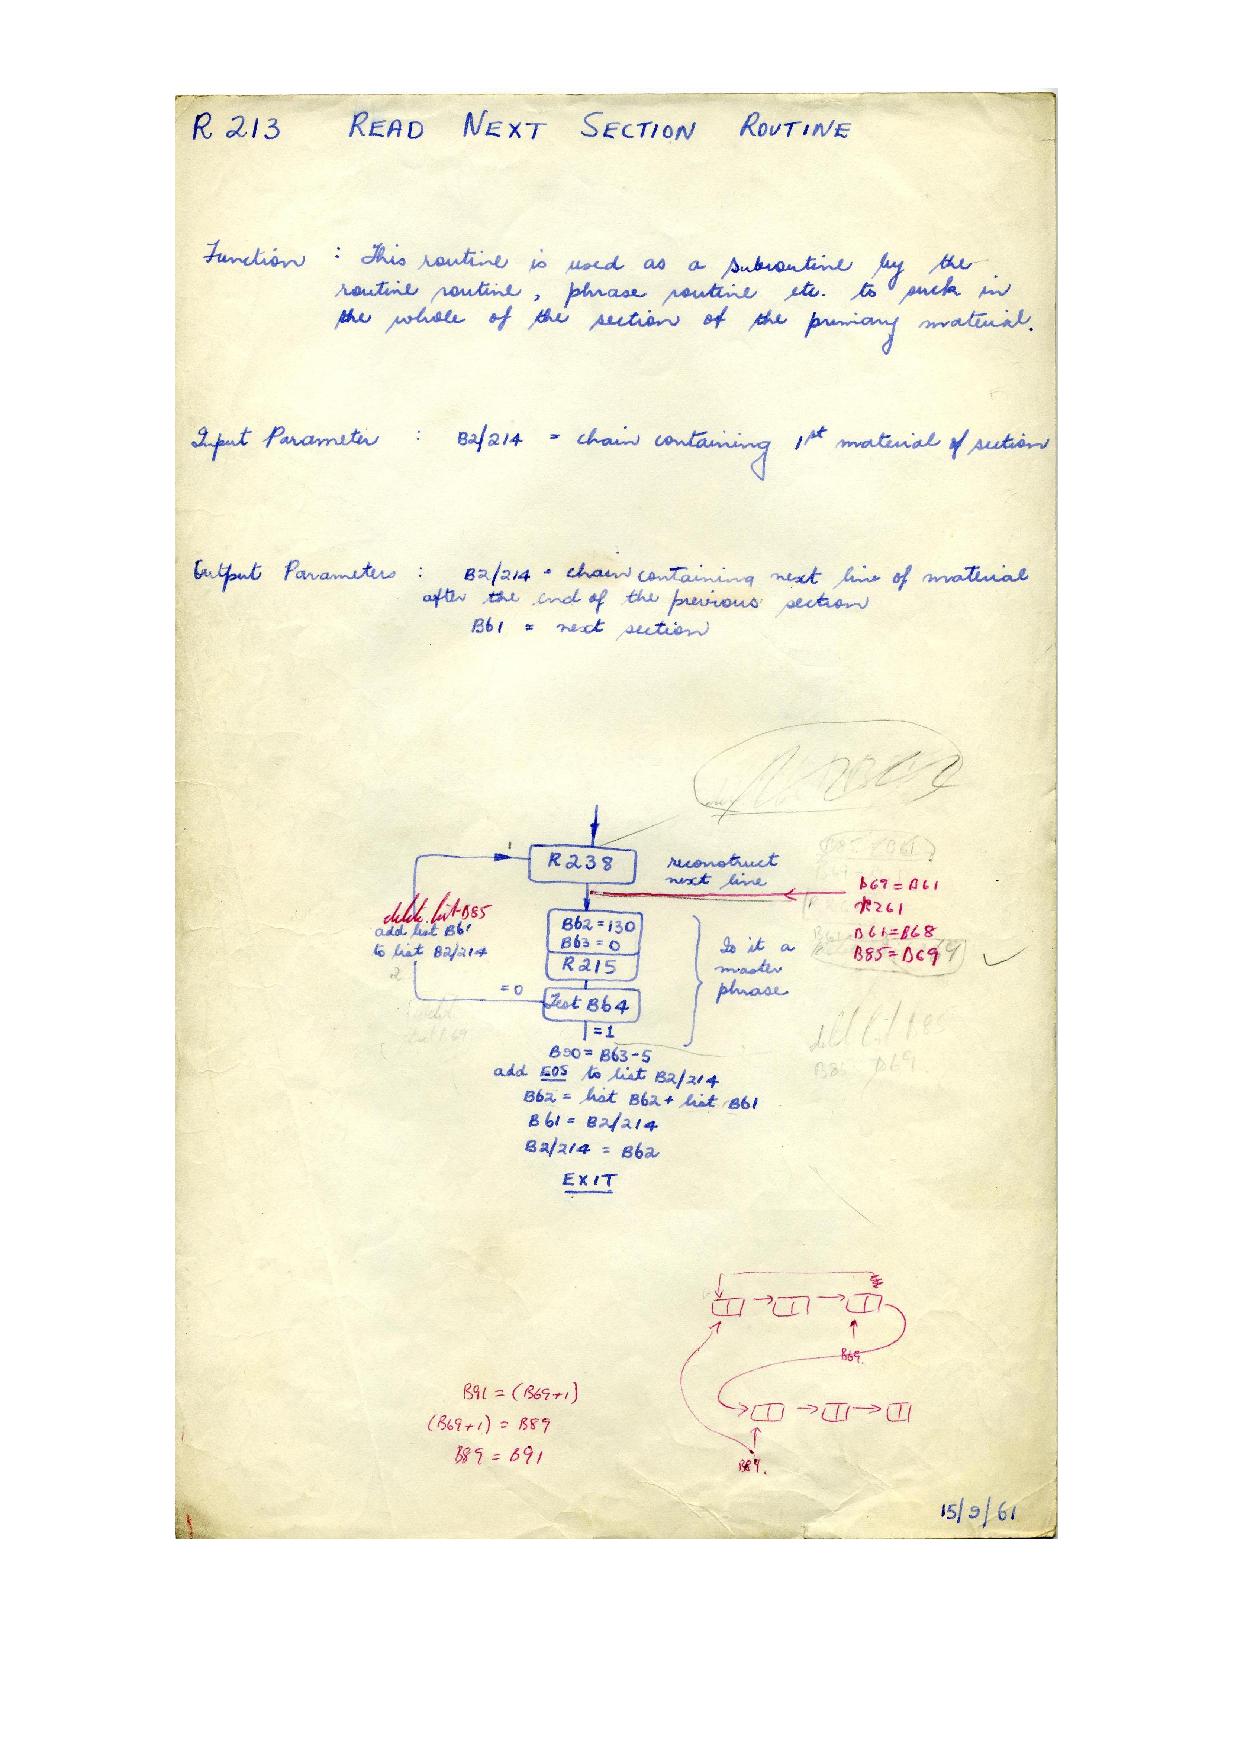 R 213 READ NEXT SECTION ROUTINE
Function : This routine is used as a subroutine by the
routine routine, phrase routine etc. to suck in
the whole of the section of the primary material.
Input Parameter : B2/214 = chain containing 1st material of section
Output Parameters : B2/214 = chain containing next line of material
after the end of the previous section
B61 = next section
R238
reconstruct
next line
B69=B61
R261
B61=B68
B85=B69
delete list B85
add list B61
to list B2/214
B62=130
B63=0
R215
Is it a
master
phrase
=0
Test B64
=1
B90= B63-5
add EOS to list B2/214
B62 = list B62 + list B61
B61 = B2/214
B2/214 = B62
EXIT
B69.
B91 = (B69+1)
(B69+1) = B89
B89 = B91
B89.
15/9/61